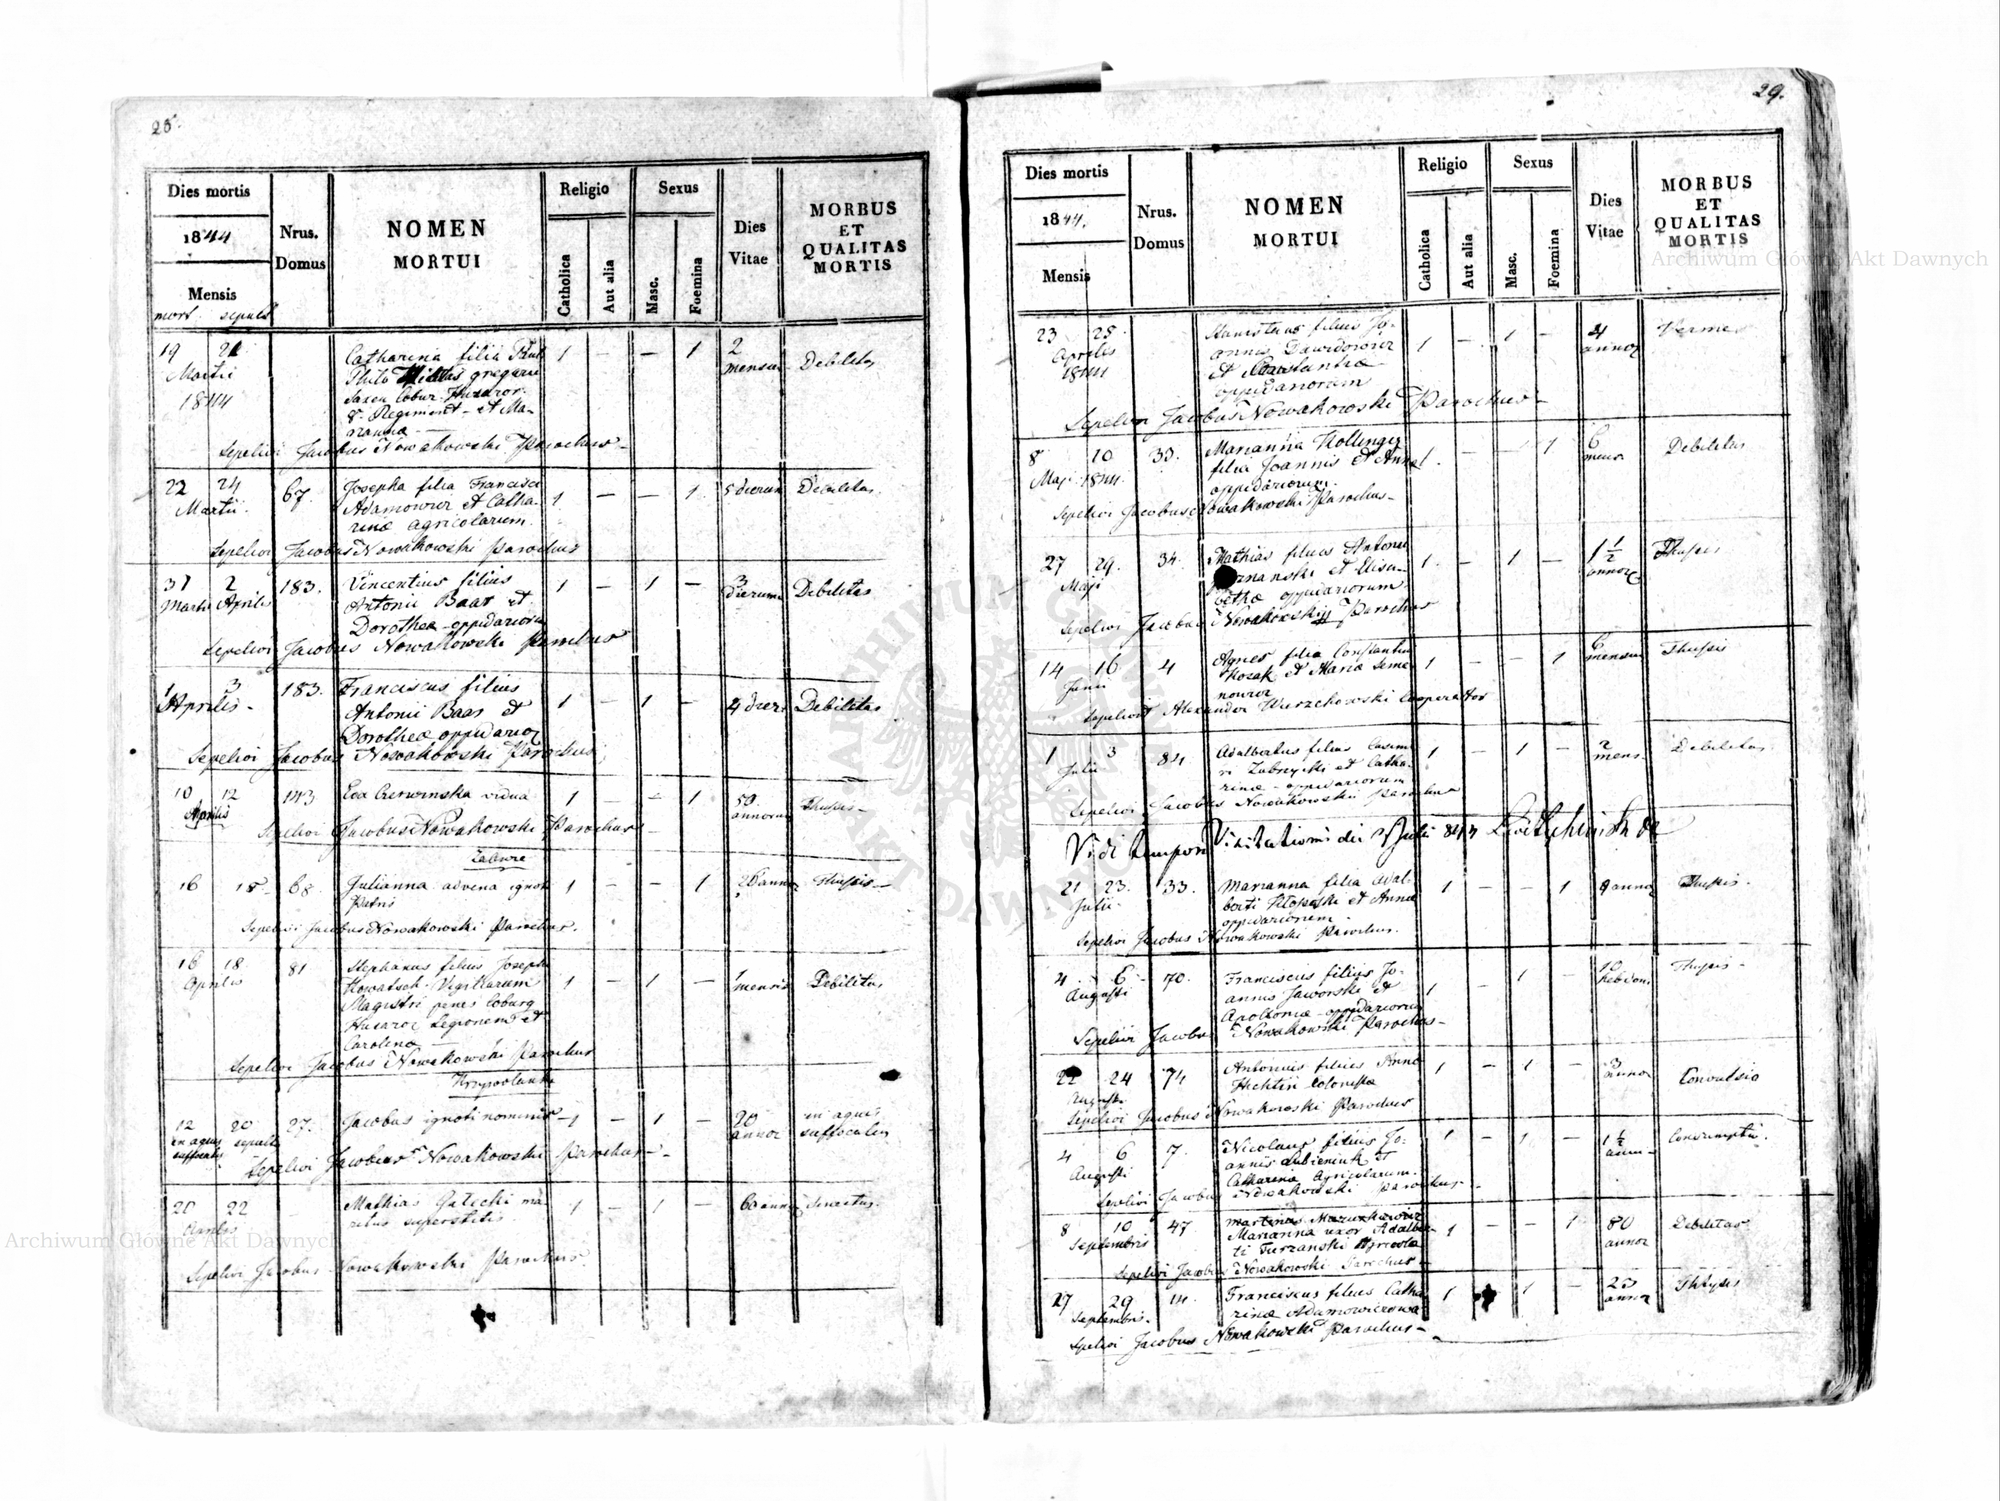 25.
Dies mortis
1844
Mensis
mort. sepult.
Nrus. Domus
NOMEN MORTUI
Religio
Catholica
Aut alia
Sexus
Masc.
Foemina
Dies Vitae
MORBUS ET QUALITAS MORTIS
19 21 Catharina filia 1 — — 1 2
Martii gregarii mensium Debilitas
1844 Saxen Cobur. Huzaror.
8. Regiment. et Ma-
rianna
Sepelivi Jacobus Nowakowski Parochus
22 24 67. Josepha filia Francisci 1 — — 1 5 dierum Debilitas
Martii. Adamowicz et Catha-
rinæ agricolarum.
Sepelivi Jacobus Nowakowski Parochus
31 2 183. Vincentius filius 1 — 1 — 3 dierum Debilitas
Martii Aprilis Antonii Baar et
Dorotheæ oppidanor
Sepelivi Jacobus Nowakowski Parochus
1 3 183. Franciscus filius 1 — 1 — 4 dier Debilitas
Aprilis Antonii Baar et
Dorotheæ oppidanor
Sepelivi Jacobus Nowakowski Parochus
10 12 143 Eva Czerwinska vidua 1 — — 1 50 annorum Thysis
Aprilis
Sepelivi Jacobus Nowakowski Parochus
16 68. Julianna advena ignoti 1 — — 1 annor Thysis
Patris
Sepelivi Jacobus Nowakowski Parochus.
16 18. 81 Stephanus filius Josephi 1 — 1 — 1 mensis Debilitas
Aprilis Kowatsch Vigiliarum
Magistri penes Coburg
Huzaror Legionem et
Carolina
Sepelivi Jacobus Nowakowski Parochus
12 20 27. Jacobus ignoti nominis 1 — 1 — 20 annor in aquis
in aquis sepult suffocatus
suffocatus
Sepelivi Jacobus Nowakowski Parochus
20 22 — Mathias Gutecki ma- 1 — 1 — 60 annor Senectus.
Aprilis ritus superstitis.
Sepelivi Jacobus Nowakowski Parochus.
29.
Dies mortis
1844.
Mensis
Nrus. Domus
NOMEN MORTUI
Religio
Catholica
Aut alia
Sexus
Masc.
Foemina
Dies Vitae
MORBUS ET QUALITAS MORTIS
23 25 Stanislaus filius Jo- 1 — 1 — 4 annor Vermes
Aprilis annis Dawidowicz
1844 et Constantiæ
oppidanorum
Sepelivi Jacobus Nowakowski Parochus
8 10 33. Marianna Hollinger 1 — — 1 6 mens Debilitas
Maji 1844. filia Joannis et Annæ
oppidanorum.
Sepelivi Jacobus Nowakowski Parochus
27 29. 34. Mathias filius Antonii 1 — 1 — 1 1/2 annor Thysis
Maji et Elisa-
bethæ oppidanorum
Sepelivi Jacobus Nowakowski Parochus
14 16 4 Agnes filia Constantini 1 — — 1 6 mensium Thysis
Junii Kozak et Mariæ Seme-
nowicz
Sepelivit Alexander Wierzchowski Cooperator
1 3 84 Adalbertus filius Casimi- 1 — 1 — 2 mens. Debilitas
Julii ri Zubrzycki et Catha-
rinæ oppidanorum
Sepelivi Jacobus Nowakowski Parochus
Vidi tempore Visitationis die Julii 844
21 23. 33. Marianna filia Adal- 1 — — 1 annor Thysis.
Julii berti et Annæ
oppidanorum.
Sepelivi Jacobus Nowakowski Parochus.
4 6 70. Franciscus filius Jo- 1 — 1 — 10 hebdom Thysis
Augusti annis Jaworski et
Apoloniæ oppidanorum
Sepelivi Jacobus Nowakowski Parochus
22 24 74 Antonius filius Anna 1 — 1 — 3 annor Convulsio
Augusti Hechtin colonista
Sepelivi Jacobus Nowakowski Parochus
4 6 7. Nicolaus filius Jo- 1 — 1 — 1 1/2 anni
Augusti annis et
Catharina Agricolarum.
Sepelivi Jacobus Nowakowski Parochus.
8 10 47. 1 — — 1 80 annor Debilitas
Septembris Marianna uxor Adalber-
ti Turzanski Agricola
Sepelivi Jacobus Nowakowski Parochus
27 29 Franciscus filius Catha- 1 1 — 25 annor Thysis
Septembris. rinæ Adamowiczowa
Sepelivi Jacobus Nowakowski Parochus
Archiwum Główne Akt Dawnych
Archiwum Główne Akt Dawnych
ARCHIWUM GŁÓWNE AKT DAWNYCH